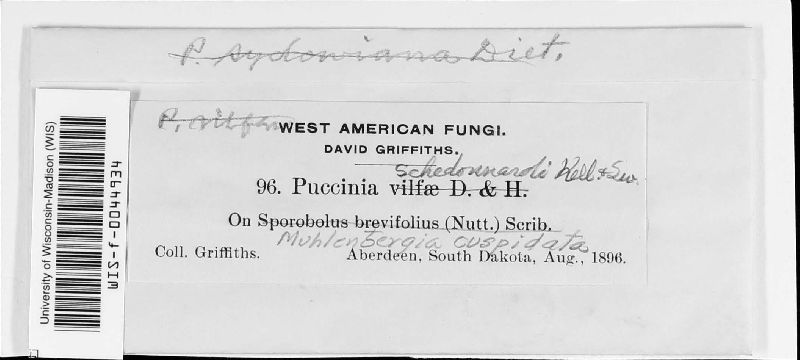 P. sydowiana Diet.
P. vilfae
WEST AMERICAN FUNGI.
DAVID GRIFFITHS.
schedonnardi Kell. + Sw.
96. Puccinia vilfæ D. & H.
On Sporobolus brevifolius (Nutt.) Scrib.
Muhlenbergia cuspidata
Coll. Griffiths. Aberdeen, South Dakota, Aug., 1896.
University of Wisconsin-Madison (WIS)
WIS-f-0044934